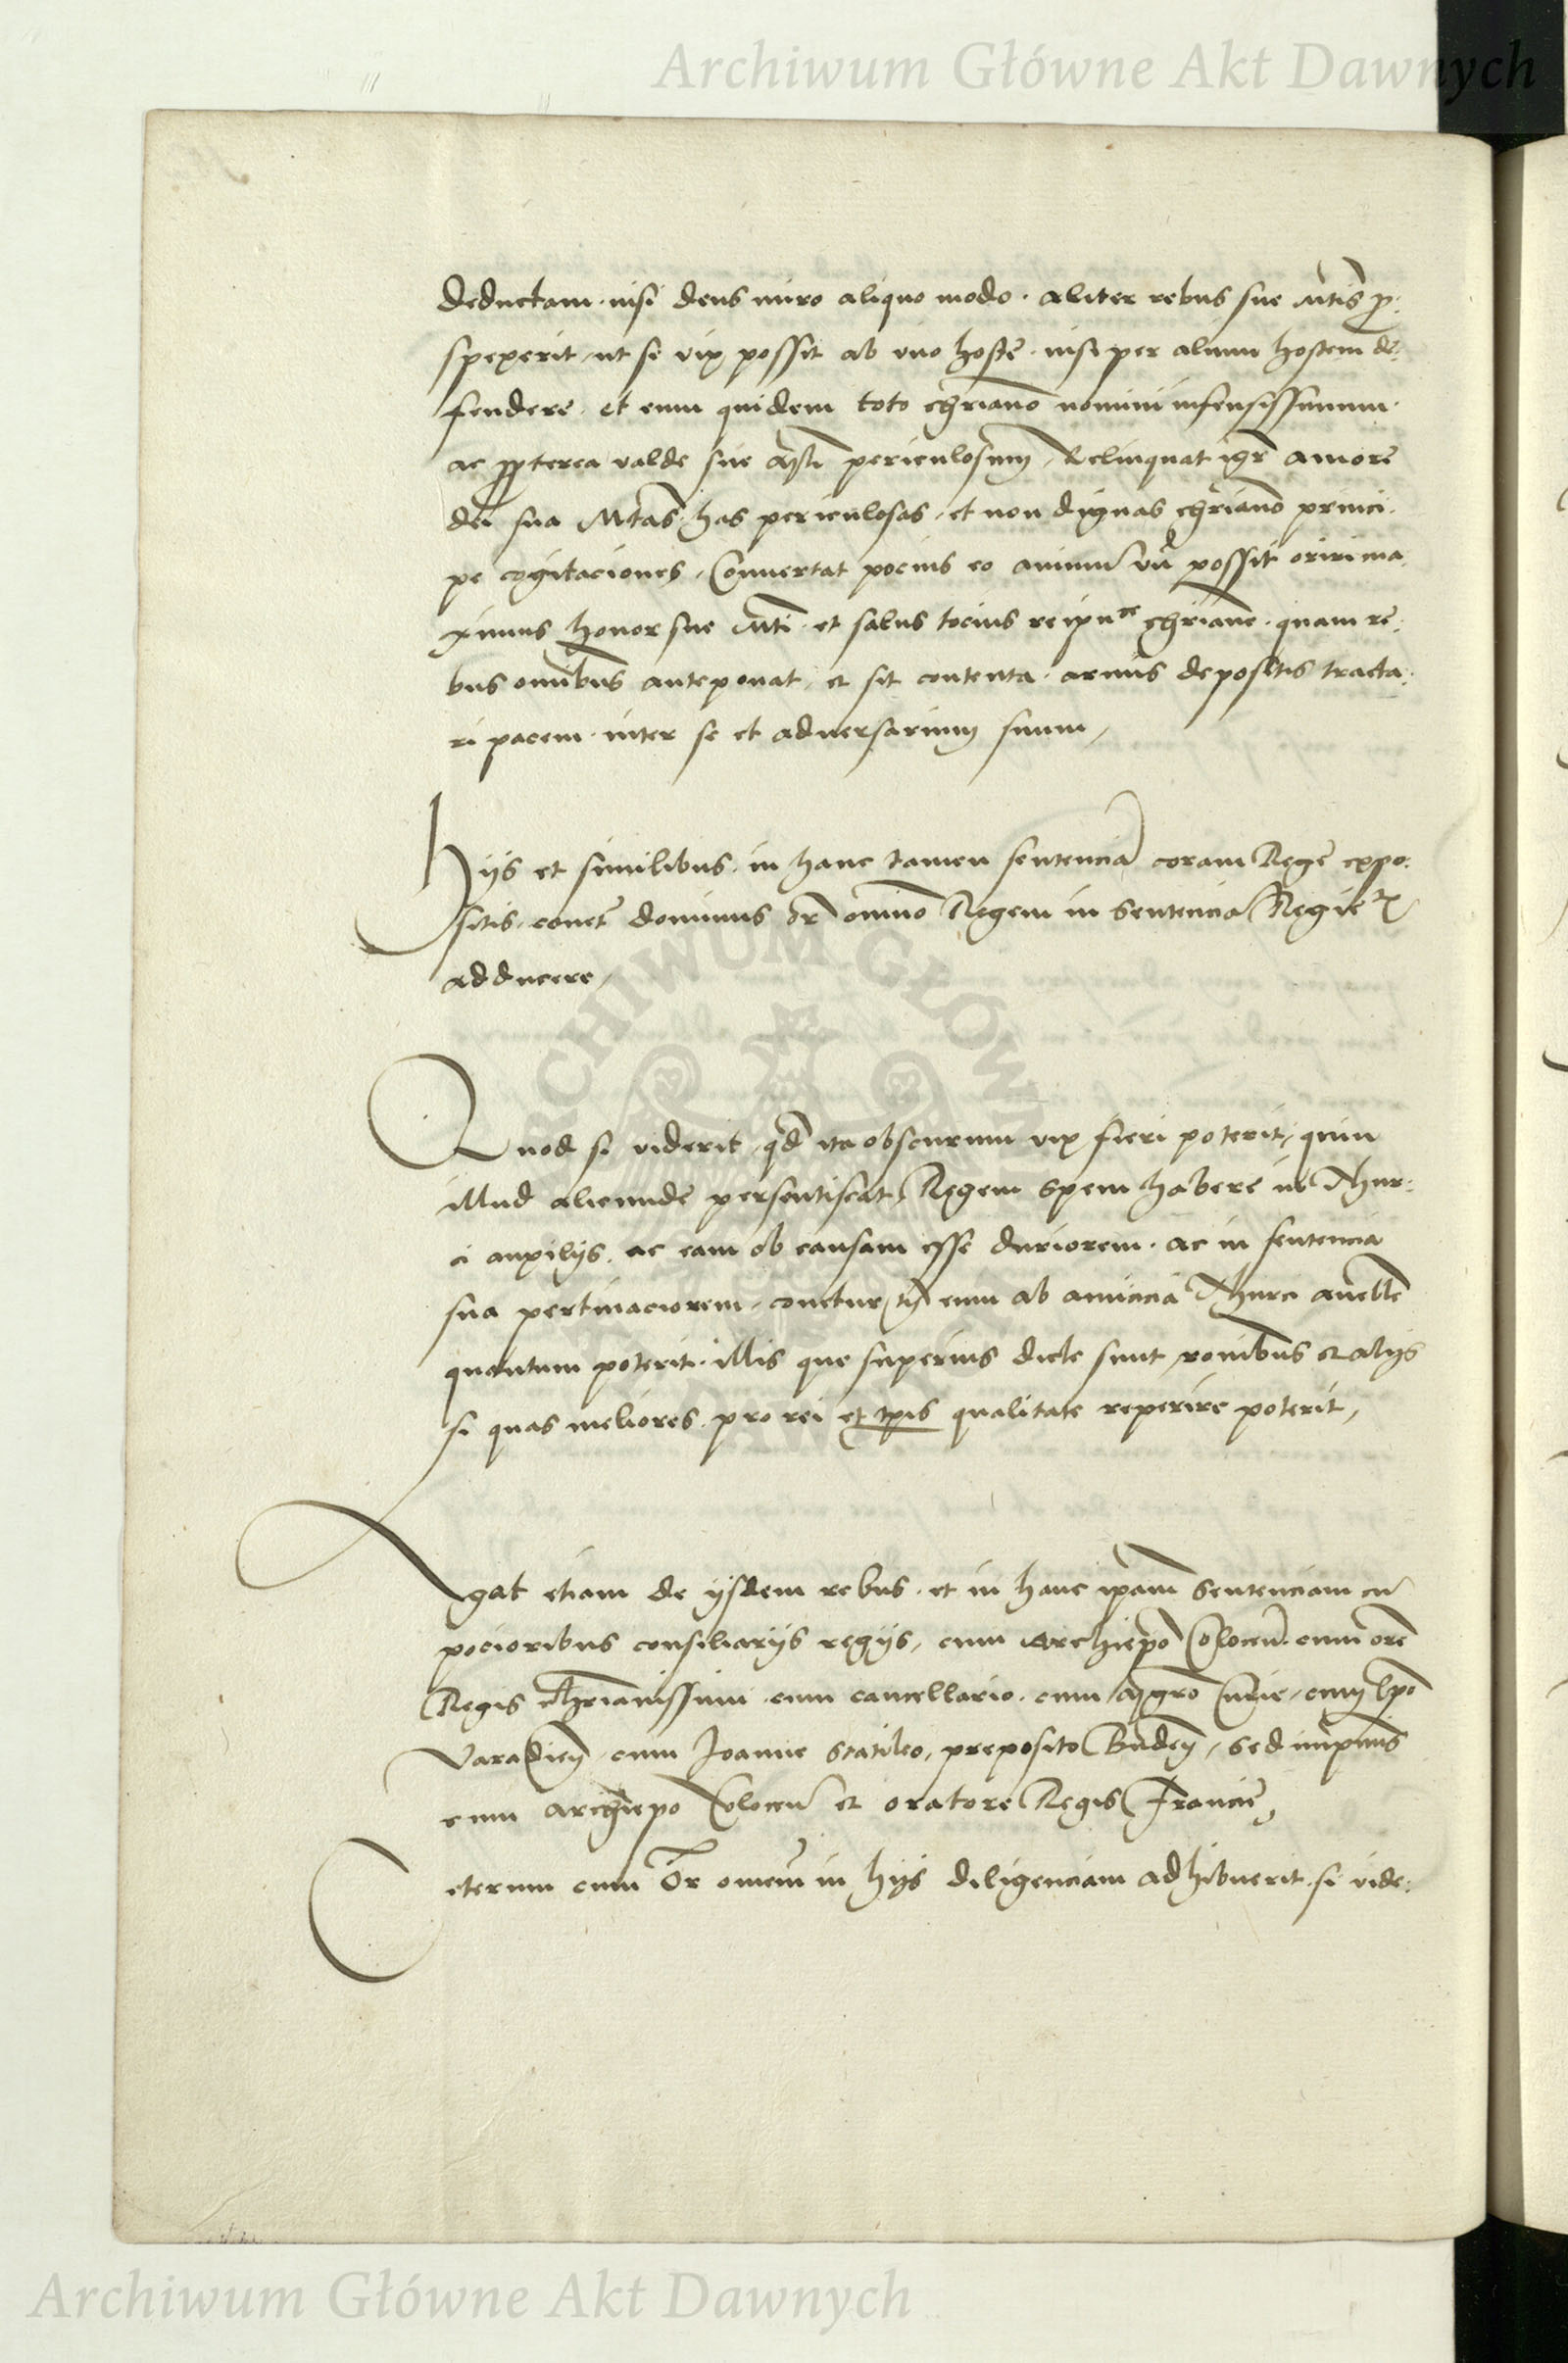 Archiwum Główne Akt Dawnych
deductam. nisi deus miro aliquo modo. aliter rebus sue Mtis p̱:
spexerit, ut se vix possit ab vno hoste. nisi per alium hostem de:
fendere. et eum quidem toto chriano nomini infensissimum.
ac propterea valde sue Mti periculosum, Relinquat igr̄ amore
dei sua Mtas has periculosas, et non dignas chriano princi.
pe cogitaciones, Conuertat pocius eo animū vn̄ possit oriri ma.
ximus honor sue Mti. et salus tocius reipu^ce chriane. quam re:
bus omnibus anteponat, et sit contenta. armis depositis tracta:
ri pacem. inter se et aduersarium suum,
hijs et similibus. in hanc tamen sentenciā coram Rege expo:
sitis, conet̄ dominus Or̄ omnino Regem in Sentenciā Regie
adducere,
Quod si viderit, qd̄ ita obscurum vix fieri poterit, quin
illud aliunde persentiscat, Regem Spem habere in Thur:
ci auxilijs. ac eam ob causam esse duriorem. ac in sentencia
sua pertinaciorem, conetur tn̄ eum ab amicicia Thurci auelle
quantum poterit. illis que superius dicte sunt, ronibus et alijs
si quas meliores. pro rei et tpis qualitate reperire poterit,
Agat etiam de ijsdem rebus. et in hanc ipam Sentenciam cū
pocioribus consiliarijs regijs, cum Archiepo Colocen̄. cum ore
Regis Chrianissimi. cum cancellario. cum Mgro Curie, cum Epo
Varadien̄, cum Joanne Statileo, preposito Buden̄, Sed inprimis
cum archiepo Colocen̄ et oratore Regis Francie,
Ceterum cum Or omnem in hijs diligenciam adhibuerit. si vide:
Archiwum Główne Akt Dawnych